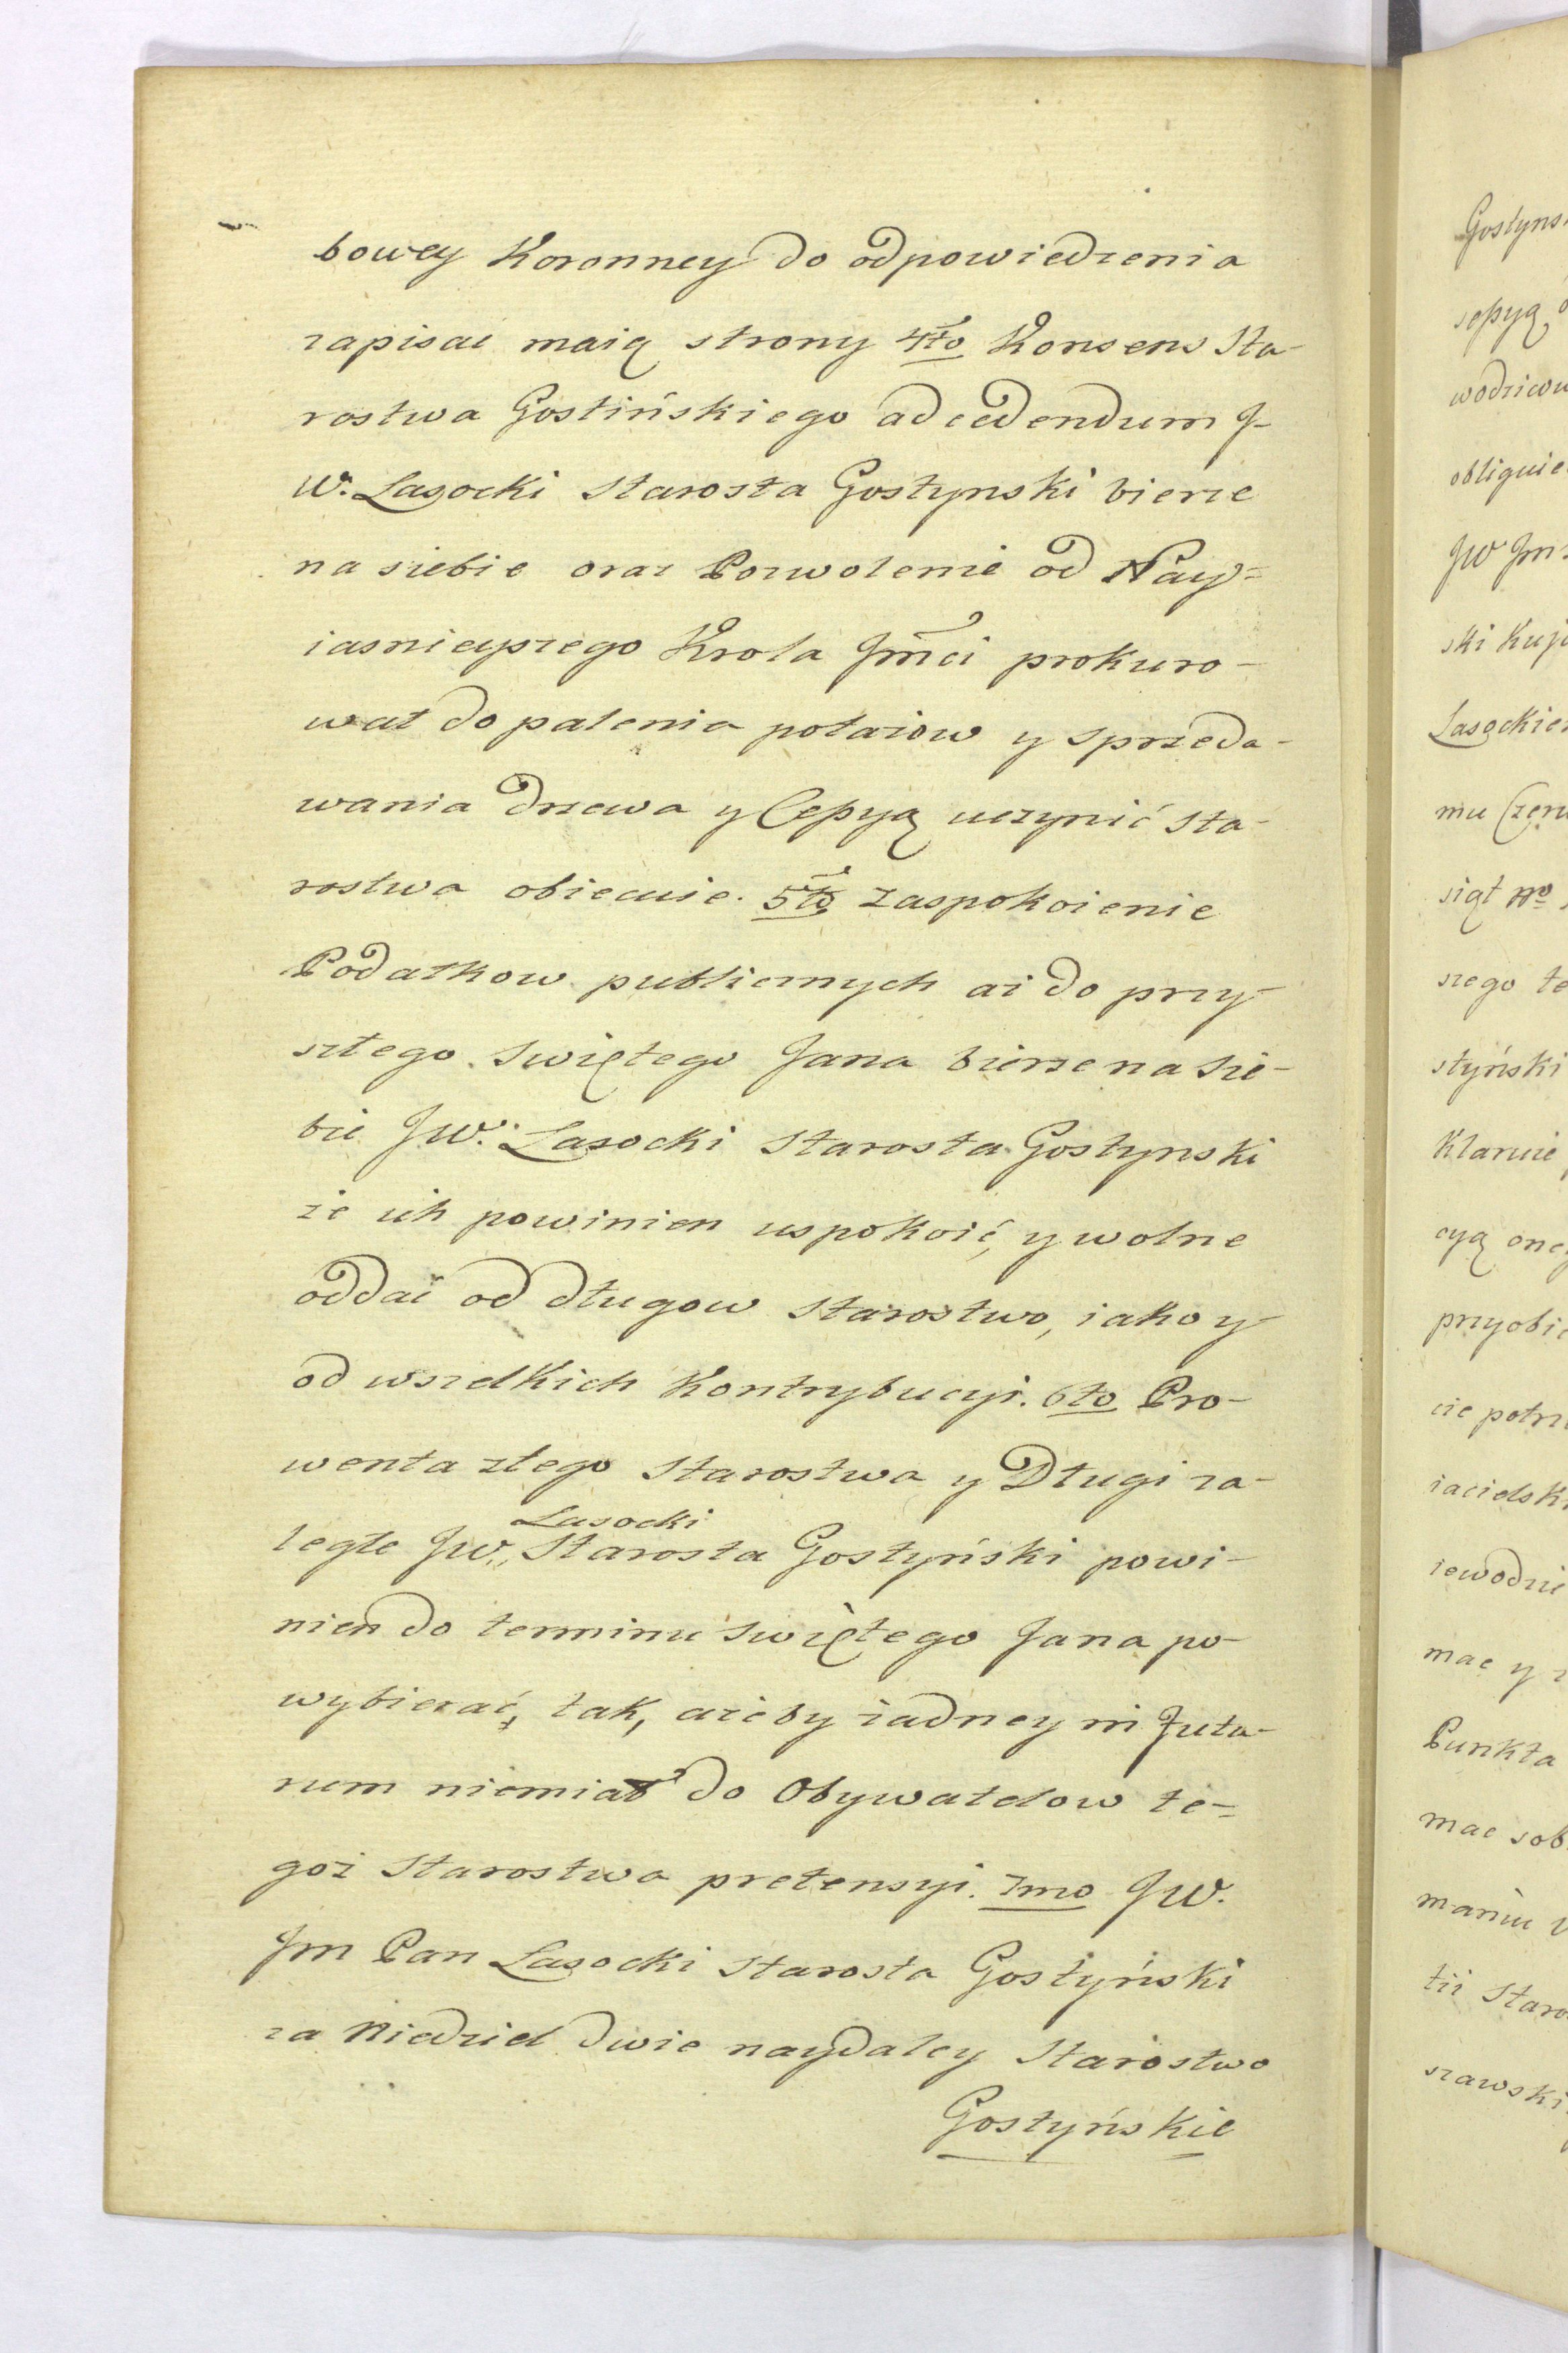 bowey Koronney do odpowiedzenia
zapisać maią strony 4to Konsens Sta-
rostwa Gostińskiego ad cedendum J-
W. Lasocki Starosta Gostynski bierze
na siebie oraz Pozwolenie od Nay=
iasnieyszego Krola Jmci prokuro-
wał do palenia potażow y sprzeda-
wania drzewa y Cessyą uczynić Sta-
rostwa obiecuie. 5to Zaspokoienie
Podatkow publicznych aż do przy-
szłego Swiętego Jana bierze na Sie-
bie JW. Lasocki Starosta Gostynski
że ich powinien uspokoić, y wolne
oddać od długow Starostwo, iako y
od wszelkich Kontrybucyi. 6to Pro-
wenta zTego Starostwa y Długi za-
Lasocki
ległe JW. Starosta Gostyński powi-
nien do terminu Swiętego Jana po-
wybierać, tak, ażeby żadney in Futu-
rum niemiał do Obywatelow te=
goż Starostwa pretensyi. 7mo JW.
Jm Pan Lasocki Starosta Gostyński
za Niedziel dwie naydaley Starostwo
Gostyńskie
Gostyns
ssyą
wodziców
obliguie
JW Jm
ski Kuj
Lasockie
mu Czerw
siąt No
szego te
styński
Klaruie
cyą one
przyobie
cie potrz
iacielski
iewodzie
mac y
Punkta
mac sob
maniu
tii Staro
szawski